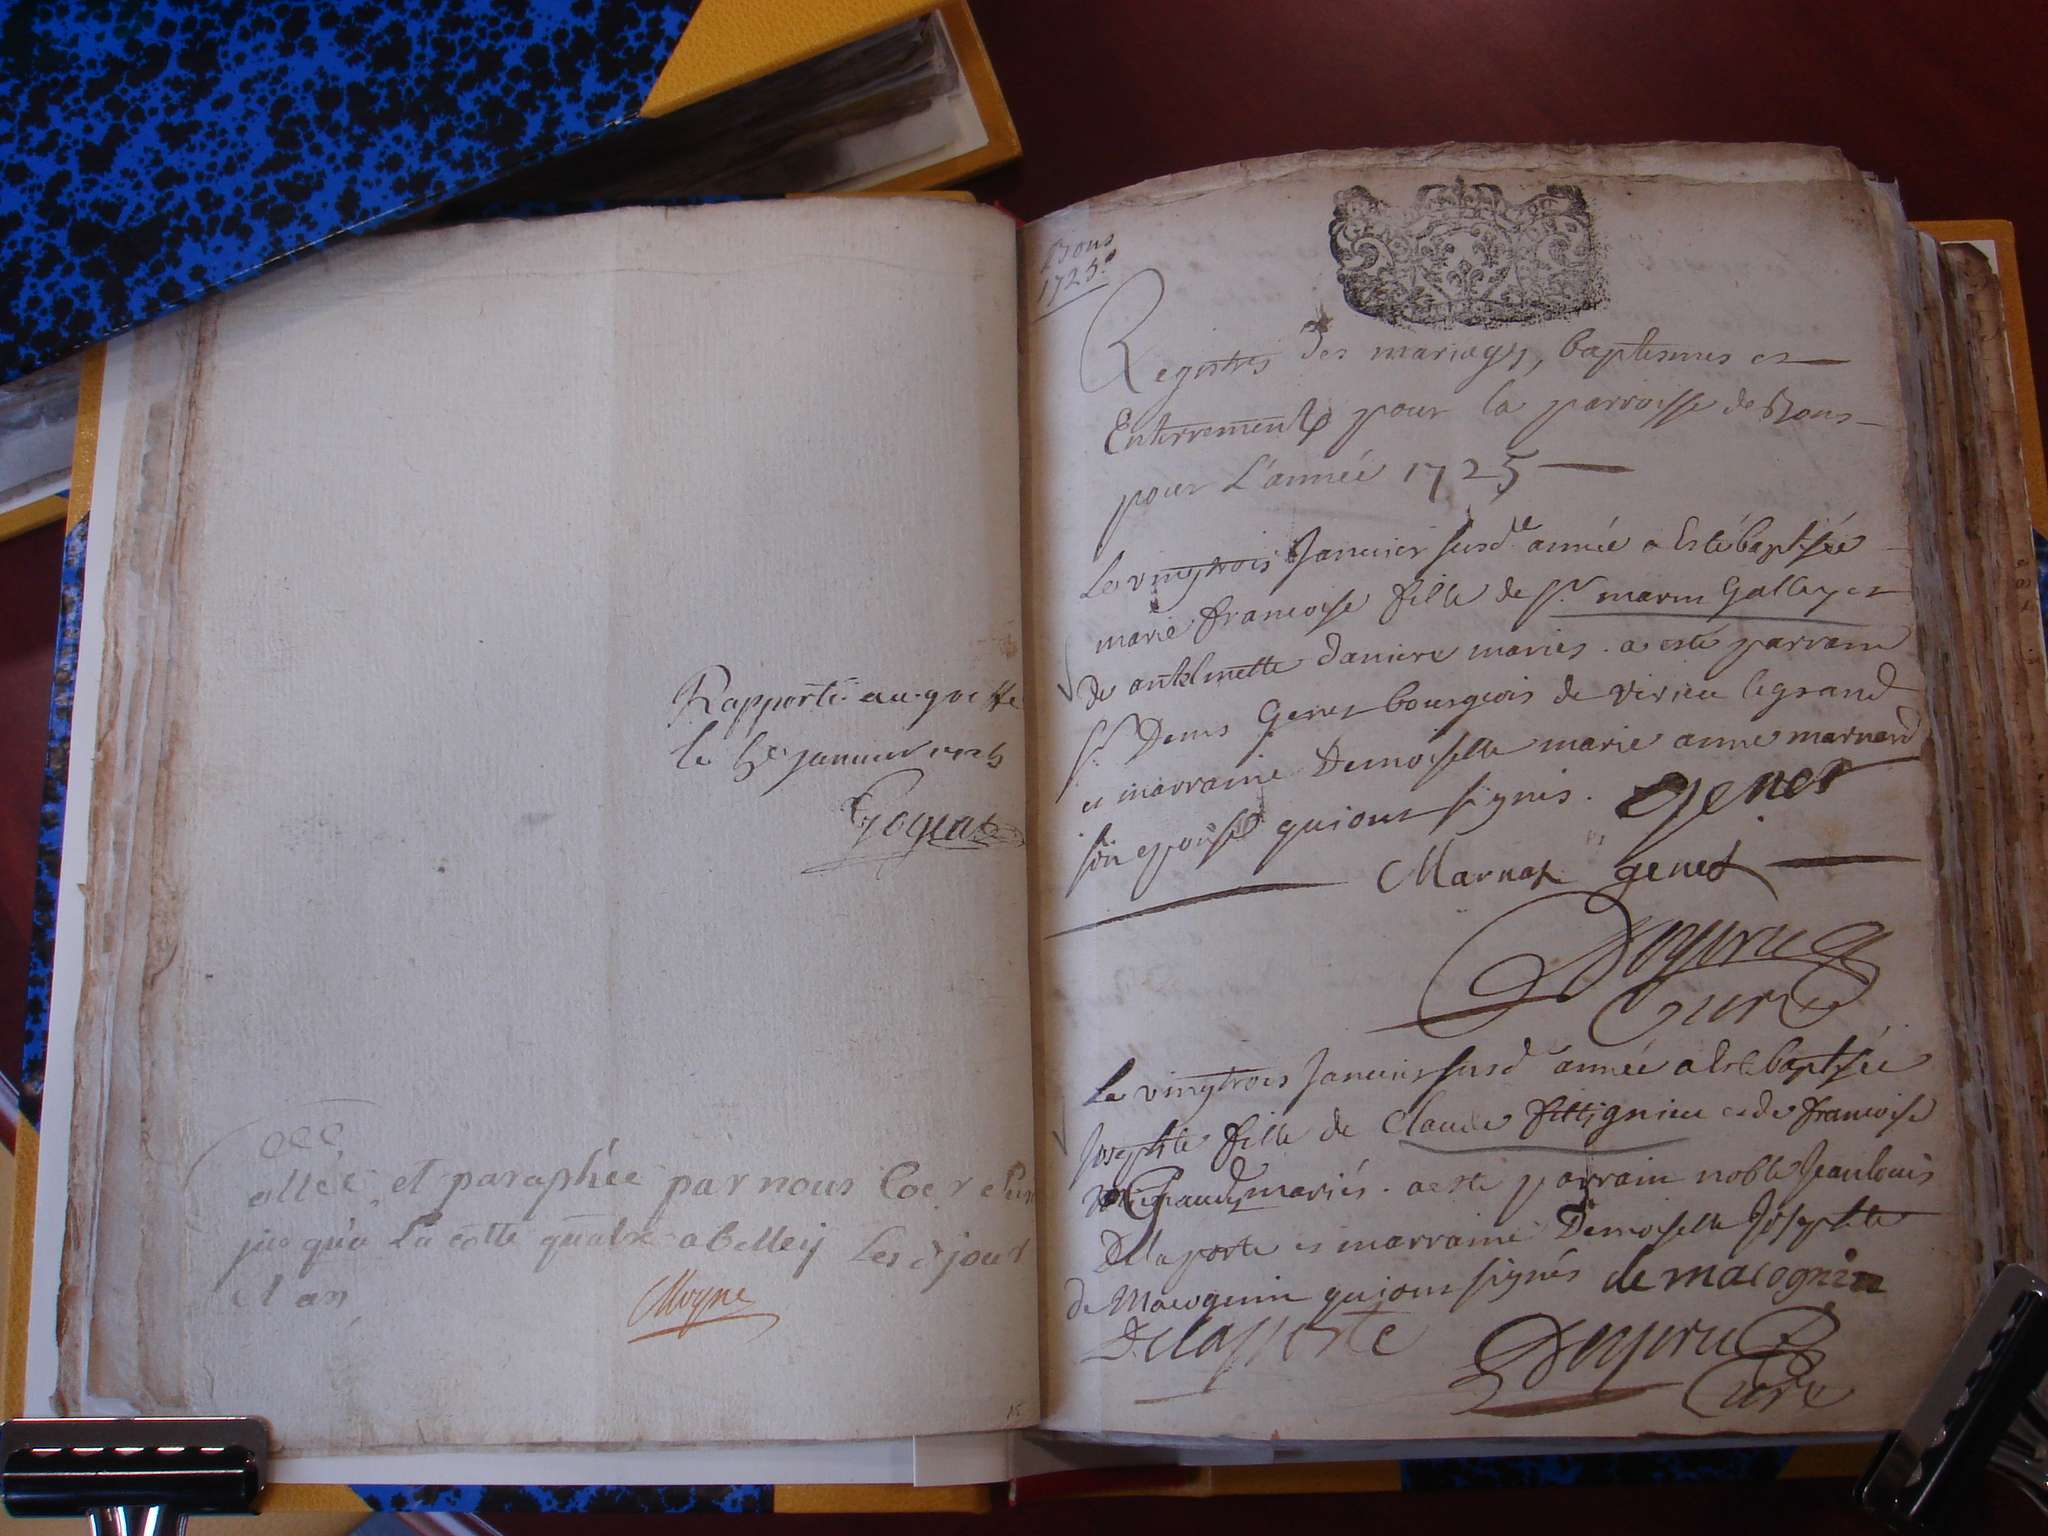 Rapporté au greffe
le 5e janvier
ollée et paraphée par nous
jusqu'a La cotte quatre a Belley Les d jour
et an
Moyne
Bons
1725.
Registres des mariages, baptesmes et
Enterrements pour la parroisse de Bons
pour L'année 1725
Le vingtrois Janvier susde année a Esté baptisée
marie francoise fille de sr. marin Gallay et
de antelmette daniere mariés. a esté parrain
sr. Denis Genet bourgeois de virieu legrand
et marraine Demoiselle marie anne marnand
son epouse qui ont signés. Genet
Marnat genet
Curé
Le vingtrois Janvier susd année a Esté baptisée
Josephte fille de Claude fittignieu et de francoise
mariés. a esté parrain noble Jean louis
Delaporte et marraine Demoiselle Josephte
de Macognin qui ont signés de macognin
Delapporte
Curé